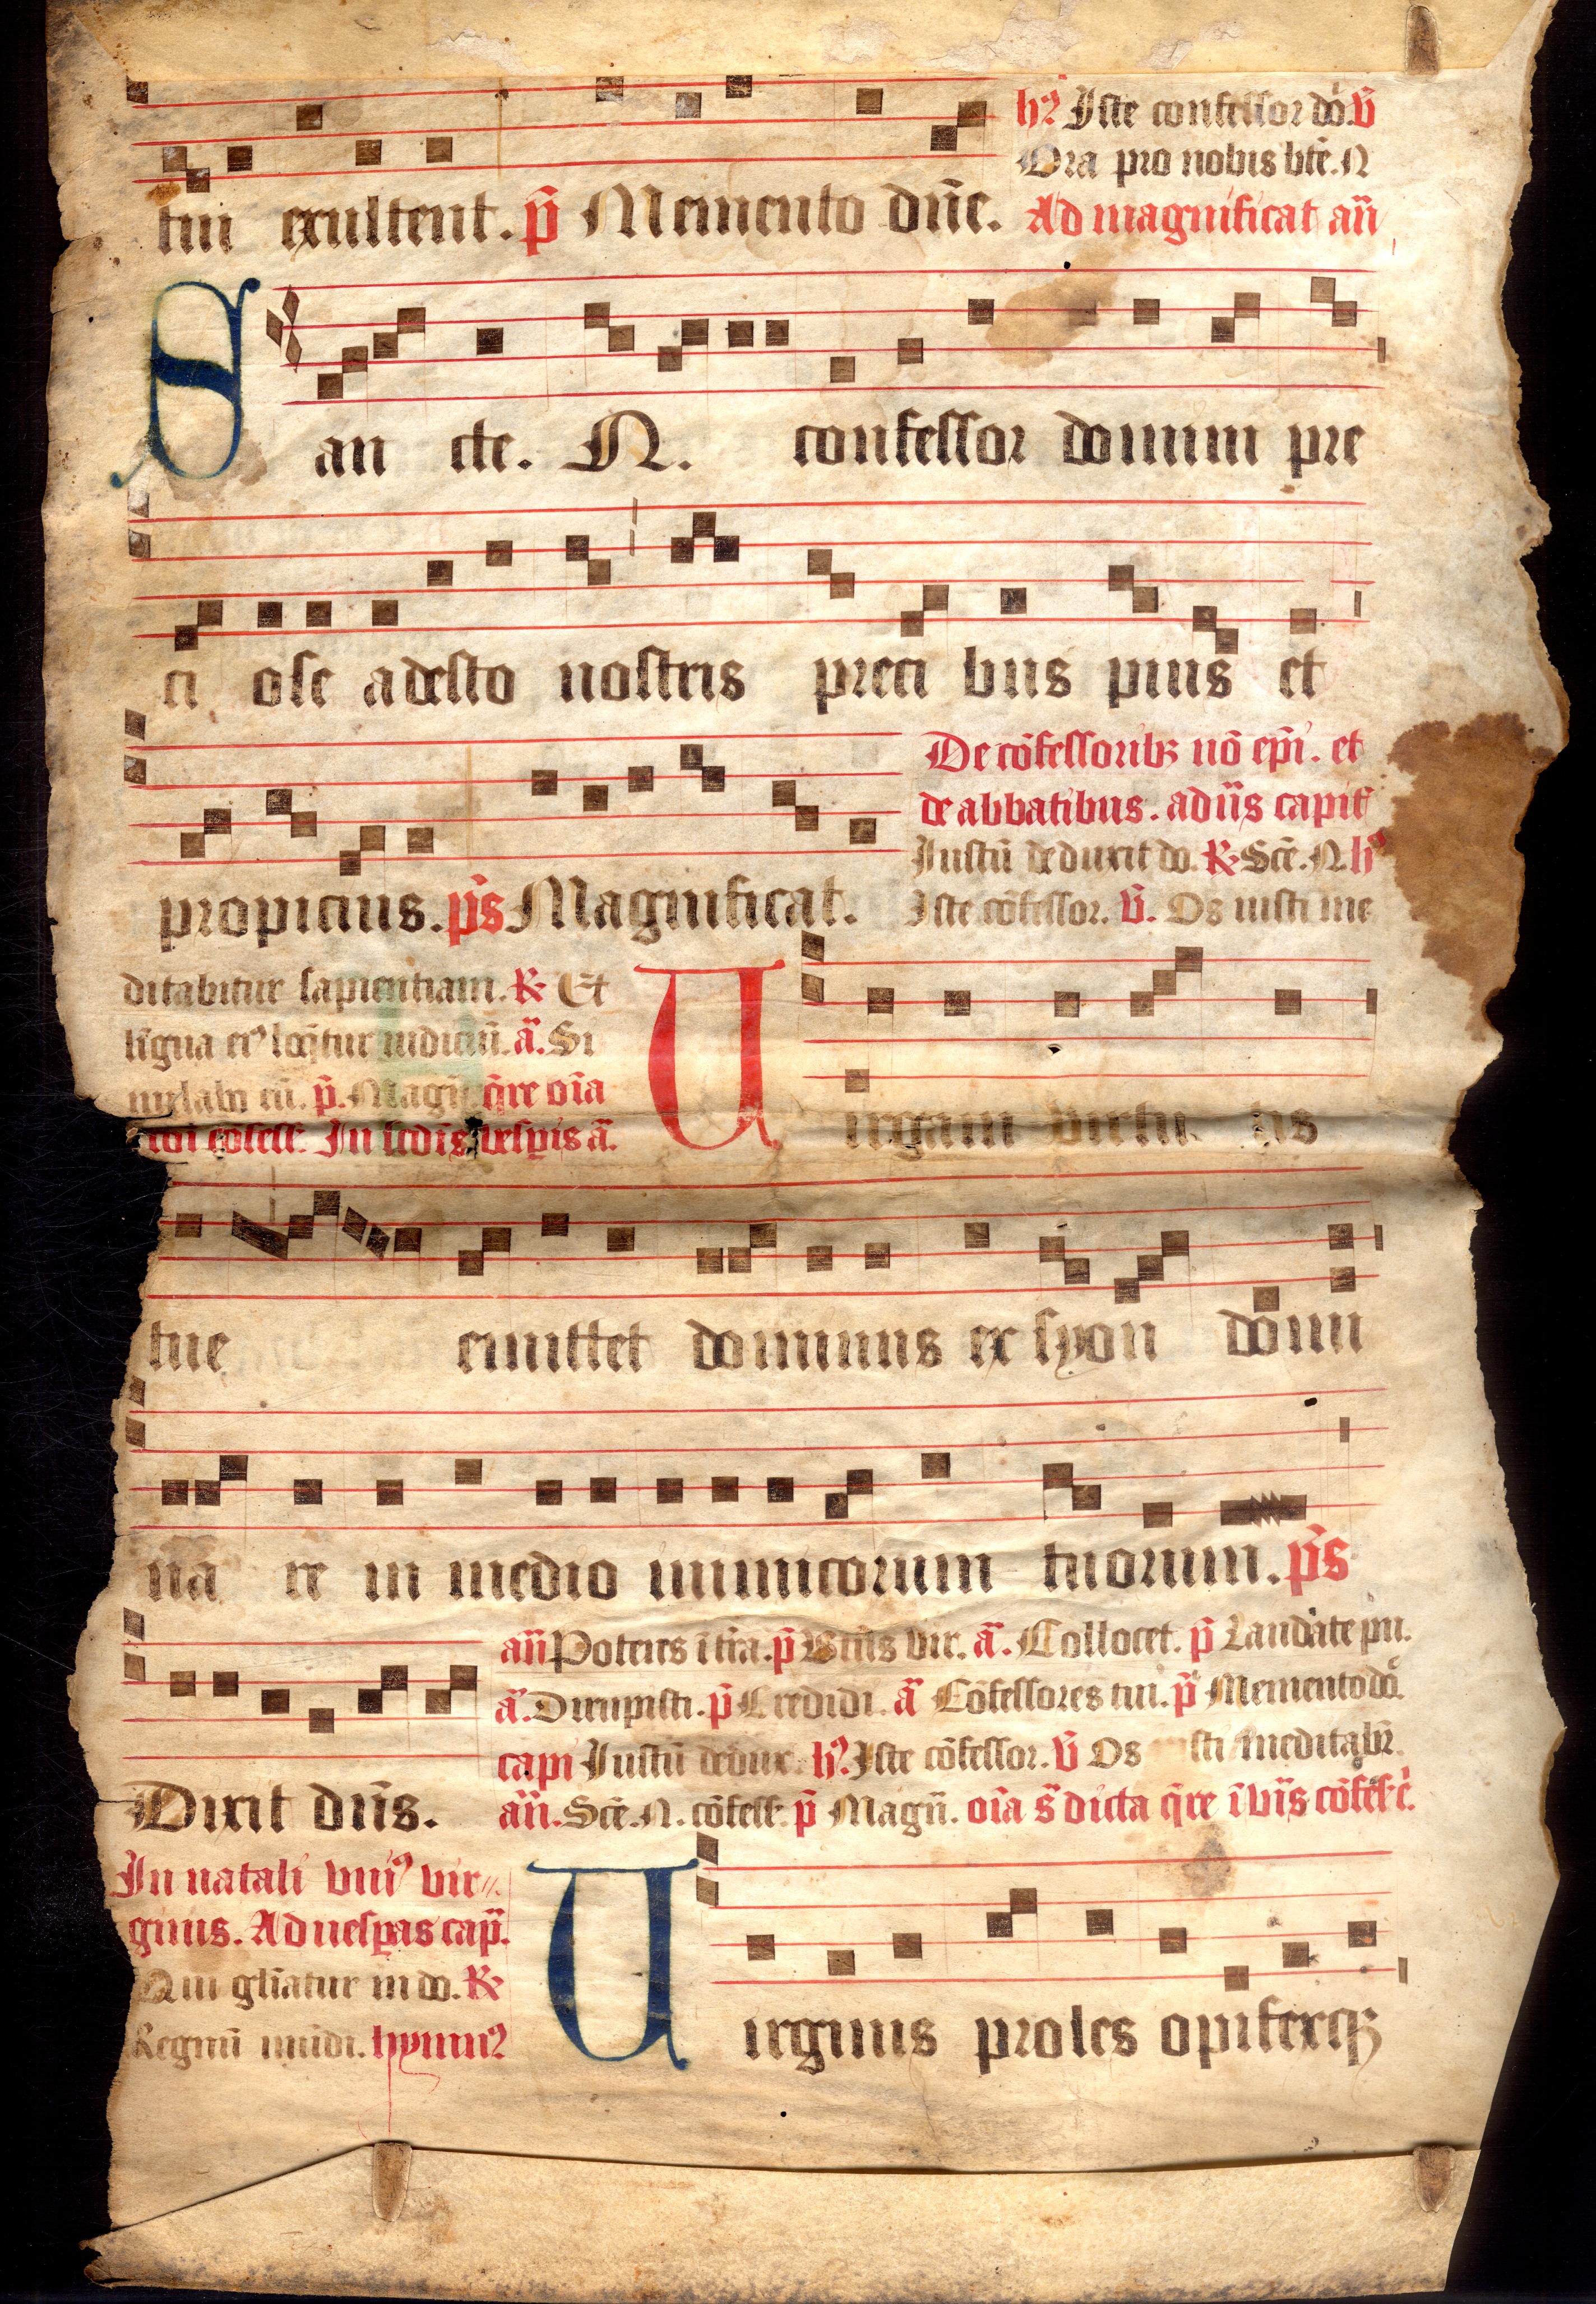 hꝰ Iste confessor do. v̄
Ora pro nobis bt̄e. N
tui exultent. p̄ Memento dn̄e.
Ad magnificat an̄
San cte. N. confessor domini pre
ci ose adesto nostris preci bus pius et
propicius. p̄s Magnificat.
De cōfessoribꝫ nō ep̄i. et
de abbatibus. ad iīs capit̄
Iustū deduxit do. ꝶ Scē. N. hꝰ
Iste cōfessor. v̄. Os iusti me
ditabitur sapientiam. ꝶ Et
lingua eiꝰ loq̄tur iudiciū. ā. Si
milabo eū. p̄. Magn̄ q̄re oīa
In scdīs vesp̱is ā.
Uirgam virtu tis
tue emittet dominus ex syon domi
na re in medio inimicorum tuorum. p̄s
an̄ Potens ī tr̄a. p̄ Btūs vir. ā. Collocet. p̄ Laudate pu.
ā. Dirupisti. p̄ Credidi. ā Cōfessores tui. p̄ Memento do.
capi Iustū dedux. hꝰ. Iste cōfessor. v̄ Os sti meditabr̄.
an̄. Scē. N. cōfess. p̄ Magn̄. oīa s̄ dicta q̄re ī
Dixit dn̄s.
In natali uniꝰ vir
ginis. Ad vesp̱as cap̄.
Qui gl̄iatur in do. ꝶ
Regnū mūdi. hymnꝰ
Uirginis proles opifexqꝫ